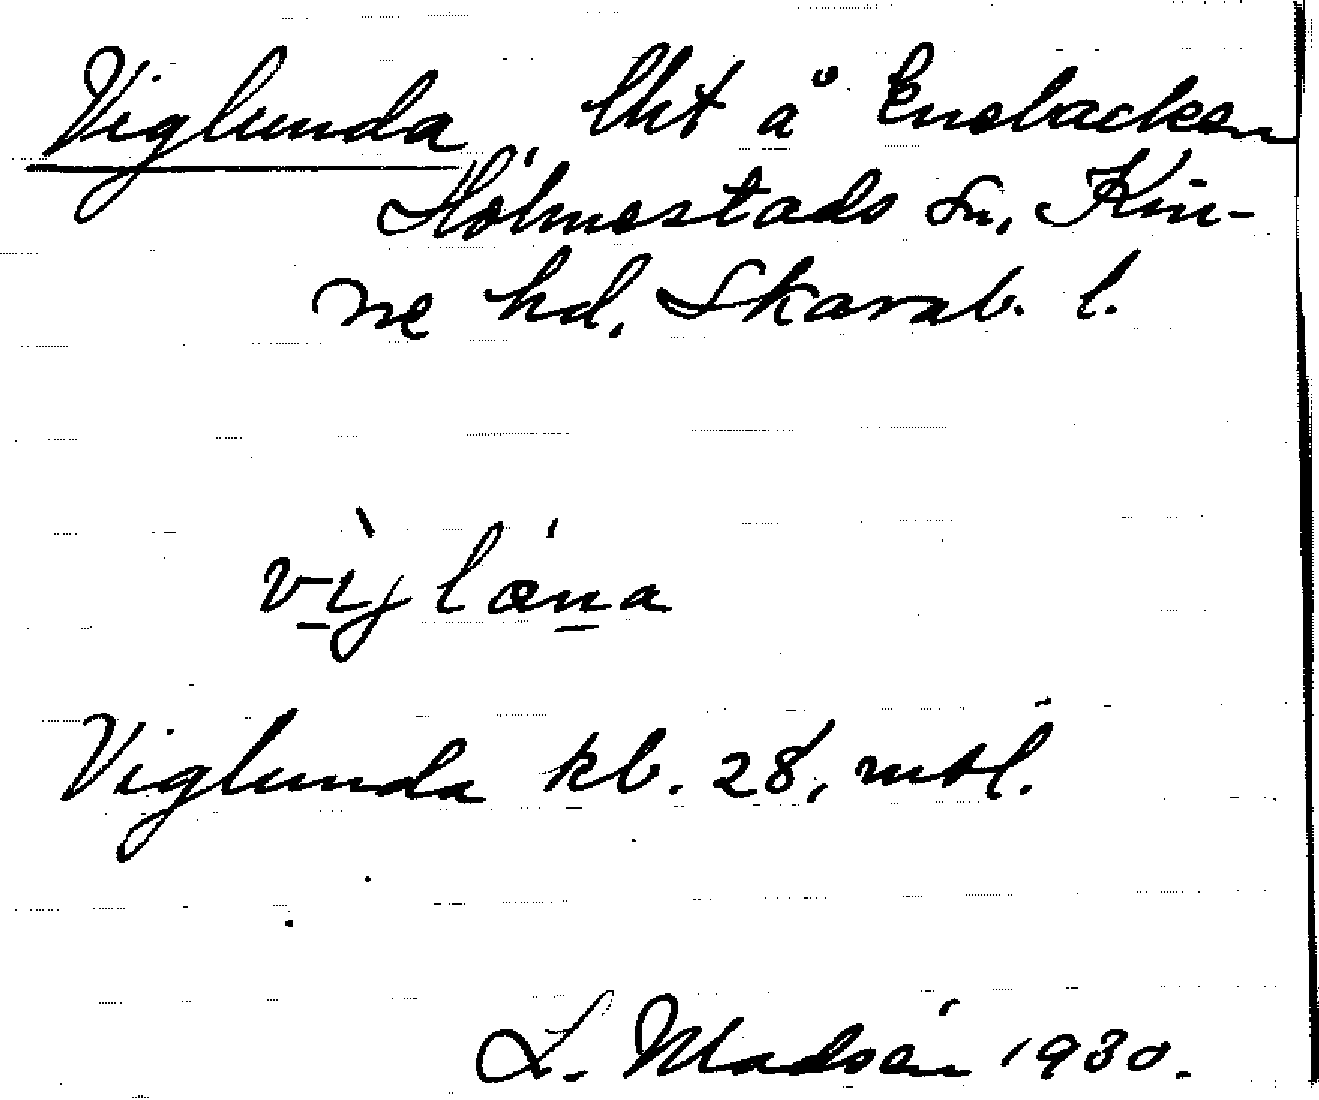 Viglunda lht å Enebacken
Holmestads sn, Kin-
ne hd, Skarab. l.
vı̀jlána
Viglunda kb. 28, mtl.
L. Madsén 1930.